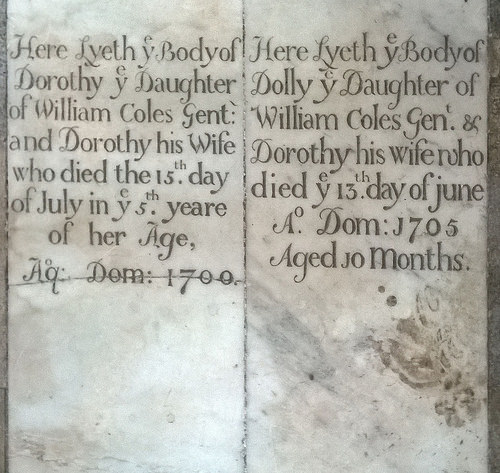 Here Lyeth yͤ Body of
Dorothy yͤ Daughter
of William Coles Gent:
and Dorothy his Wife
who died the 15.ᵗʰ day
of July in yͤ 5.ᵗʰ yeare
of her Age,
Aº: Dom: 1700.
Here Lyeth yͤ Body of
Dolly yͤ Daughter of
William Coles Genᵗ. &
Dorothy his Wife who
died yͤ 13.ᵗʰ day of june
Aº. Dom: 1705
Aged 10 Months.